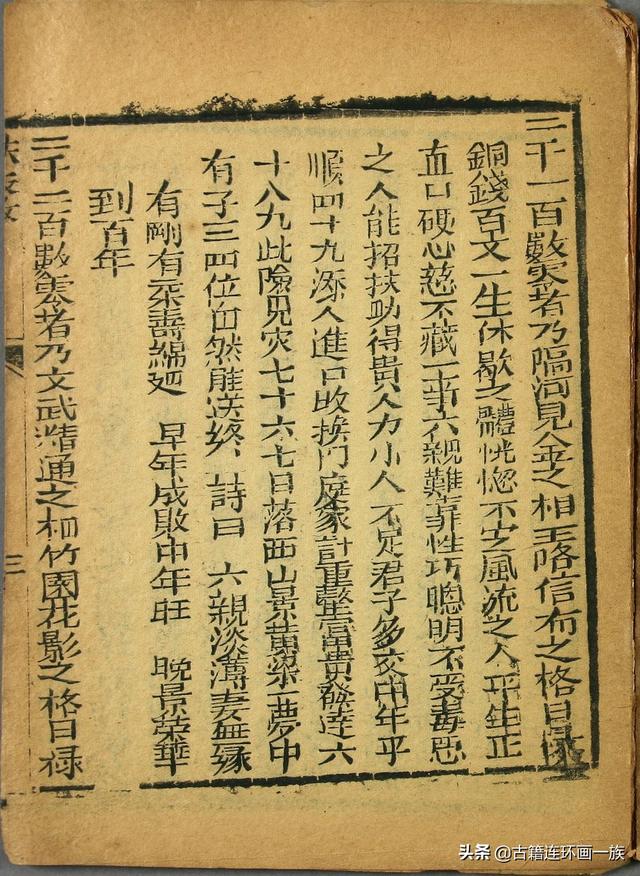 三千一百數零者乃隔河見金之相玉咯信布之格日
銅錢百文一生休歇之體恍惚不定風流之人平生正
直口硬心慈不藏一事六親難靠性巧聰明不受毒惡
之人能招扶助得貴人力小人不足君子多交中年平
順四十九添人進口改換門庭家計重整富貴發達六
十八九此險見災七十六七日落西山景黃粱一夢中
有子三四位自然能送終詩曰 六親淡薄妻無緣
有剛有柔壽綿延 早年成敗中年旺 晚景榮華
到百年
二千二百數零者乃文武精通之相竹園花影之格日祿
三
头条 @古籍连环画一族